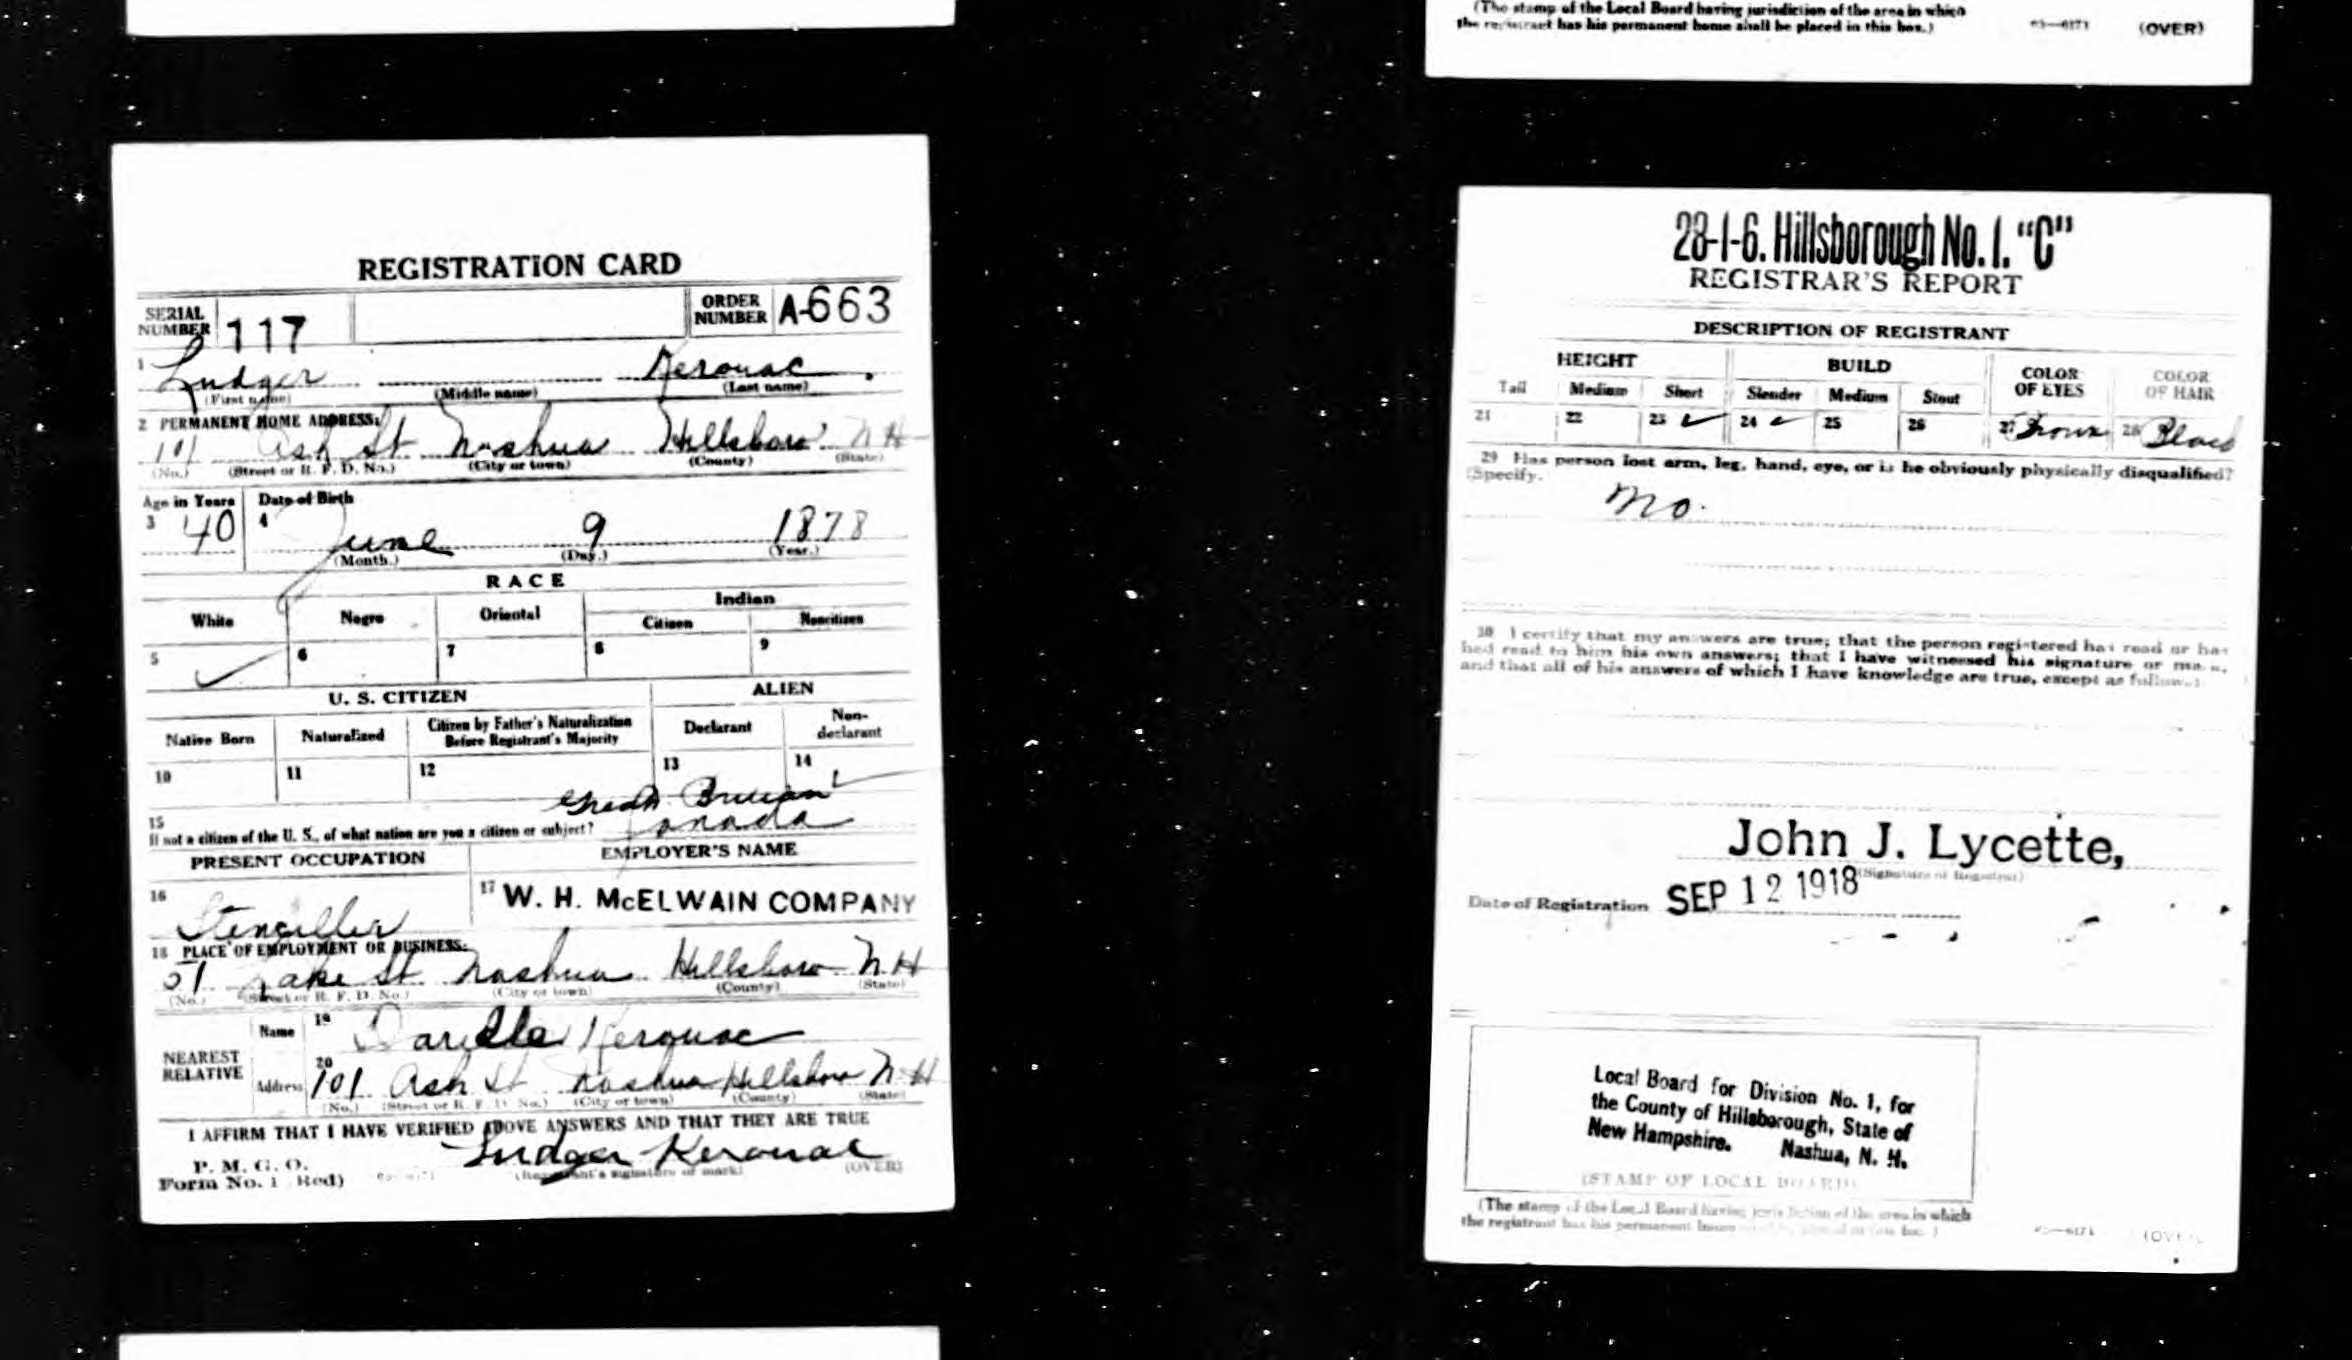 (The stamp of the Local Board having jurisdiction of the area in which
the registrant has his permanent home shall be placed in this box.)
(OVER)
REGISTRATION CARD
SERIAL NUMBER 117
ORDER NUMBER A-663
1 Ludger Kerouac
(First name) (Middle name) (Last name)
2 PERMANENT HOME ADDRESS:
101 Ash St Nashua Hillsboro N H
(No.) (Street or R. F. D. No.) (City or town) (County) (State)
Age in Years Date of Birth
3 40 4 June 9 1878
(Month.) (Day.) (Year.)
RACE
White Negro Oriental Indian
Citizen Noncitizen
5 ✓ 6 7 8 9
U. S. CITIZEN ALIEN
Native Born Naturalized Citizen by Father's Naturalization Before Registrant's Majority Declarant Non-declarant
10 11 12 13 14 ✓
Great Britian
15
If not a citizen of the U. S., of what nation are you a citizen or subject? Canada
PRESENT OCCUPATION EMPLOYER'S NAME
16 Stenciller 17 W. H. McELWAIN COMPANY
18 PLACE OF EMPLOYMENT OR BUSINESS:
51 Lake St Nashua Hillsboro N. H
(No.) (Street or R. F. D. No.) (City or town) (County) (State)
NEAREST RELATIVE
Name 19 Kerouac
Address 20 101 Ash St Nashua Hillsboro N H
(No.) (Street or R. F. D. No.) (City or town) (County) (State)
I AFFIRM THAT I HAVE VERIFIED ABOVE ANSWERS AND THAT THEY ARE TRUE
P. M. G. O.
Form No. 1 (Red) Ludger Kerouac
(Registrant's signature or mark) (OVER)
28-1-6. Hillsborough No. 1. "C"
REGISTRAR'S REPORT
DESCRIPTION OF REGISTRANT
HEIGHT BUILD COLOR OF EYES COLOR OF HAIR
Tall Medium Short Slender Medium Stout
21 22 23 ✓ 24 ✓ 25 26 27 Brown 28 Black
29 Has person lost arm, leg, hand, eye, or is he obviously physically disqualified?
(Specify.
No.
30 I certify that my answers are true; that the person registered has read or has
had read to him his own answers; that I have witnessed his signature or mark,
and that all of his answers of which I have knowledge are true, except as follows:
John J. Lycette,
(Signature of Registrar)
Date of Registration SEP 12 1918
Local Board for Division No. 1, for
the County of Hillsborough, State of
New Hampshire. Nashua, N. H.
(STAMP OF LOCAL BOARD)
(The stamp of the Local Board having jurisdiction of the area in which
the registrant has his permanent home shall be placed in this box.)
(OVER)